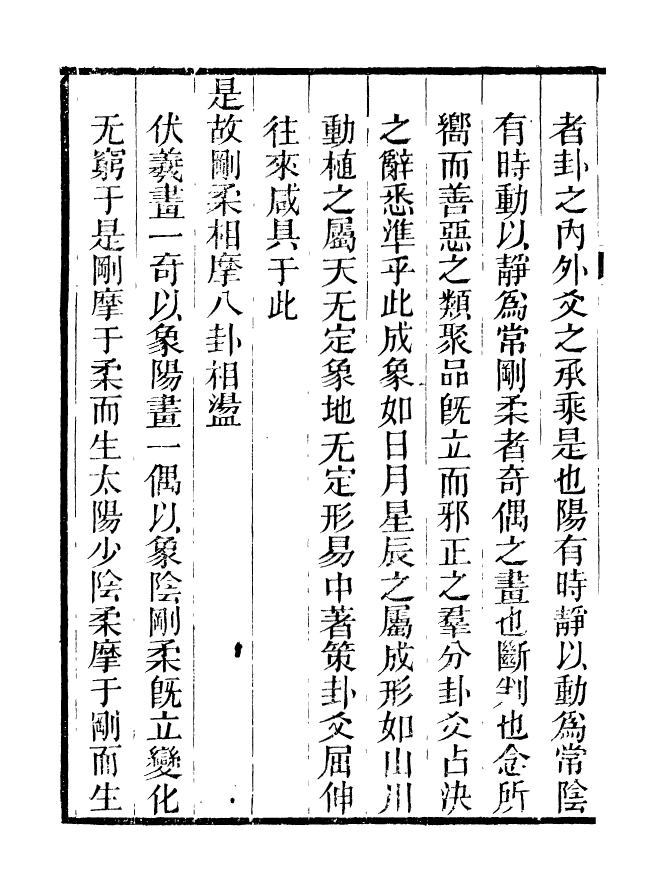 者卦之內外爻之承乘是也陽有時靜以動爲常陰
有時動以靜爲常剛柔者奇偶之畫也斷判也念所
嚮而善惡之類聚品旣立而邪正之羣分卦爻占決
之辭悉準乎此成象如日月星辰之屬成形如山川
動植之屬天无定象地无定形易中著策卦爻屈伸
往來咸具于此
是故剛柔相摩八卦相盪
伏羲畫一奇以象陽畫一偶以象陰剛柔旣立變化
无窮于是剛摩于柔而生太陽少陰柔摩于剛而生